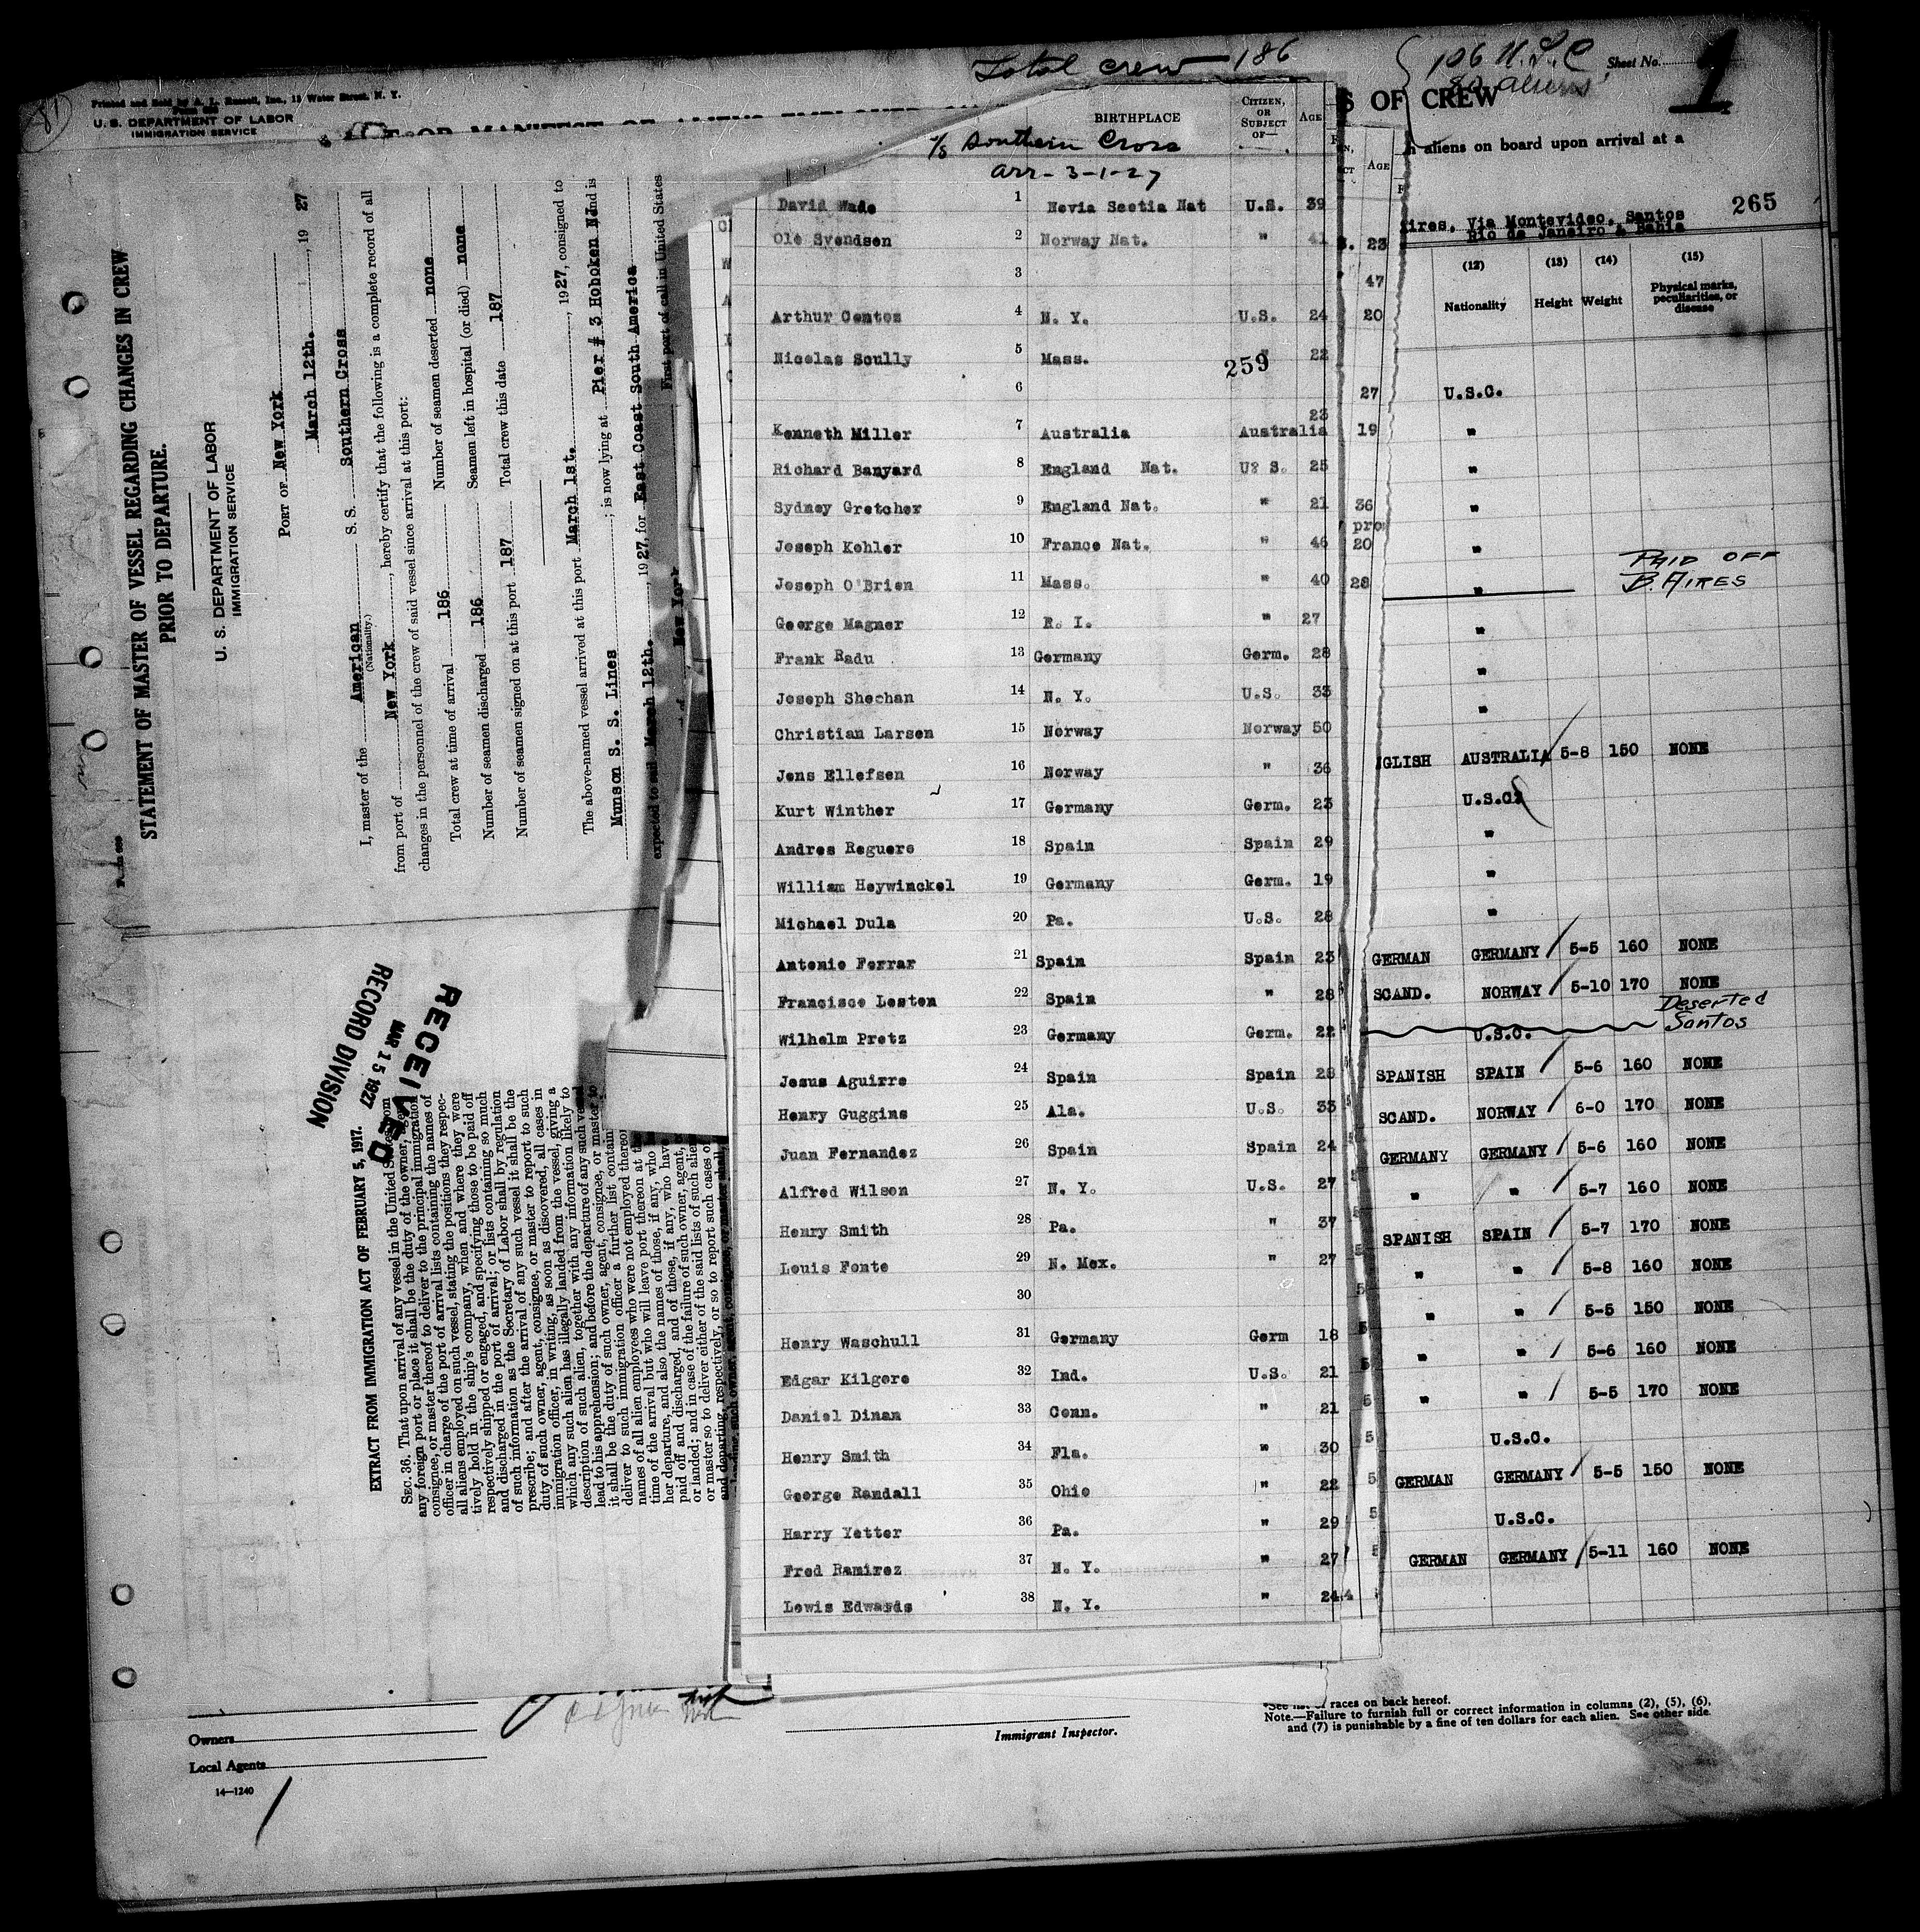 Total crew 186
106 U.S.C
80 aliens
Sheet No.
1
81
Printed and Sold by A. L. Russell, Inc., 15 Water Street, N. Y.
U. S. DEPARTMENT OF LABOR
IMMIGRATION SERVICE
S OF CREW
aliens on board upon arrival at a
265
ires, Via Montevideo, Santos
Rio de Janeiro & Bahia
STATEMENT OF MASTER OF VESSEL REGARDING CHANGES IN CREW
PRIOR TO DEPARTURE.
U. S. DEPARTMENT OF LABOR
IMMIGRATION SERVICE
PORT OF New York
March 12th. , 19 27
I, master of the American S. S. Southern Cross
(Nationality.)
from port of New York , hereby certify that the following is a complete record of all
changes in the personnel of the crew of said vessel since arrival at this port:
Total crew at time of arrival 186 Number of seamen deserted none
Number of seamen discharged 186 Seamen left in hospital (or died) none
Number of seamen signed on at this port 187 Total crew this date 187
The above-named vessel arrived at this port March 1st. , 1927, consigned to
Munson S. S. Lines ; is now lying at Pier # 3 Hoboken NJ and is
expected to sail March 12th. , 1927, for East Coast South America
New York First port of call in United States
RECEIVED
MAR 15 1927
RECORD DIVISION
EXTRACT FROM IMMIGRATION ACT OF FEBRUARY 5, 1917.
SEC. 36. That upon arrival of any vessel in the United States from
any foreign port or place it shall be the duty of the owner, agent,
consignee, or master thereof to deliver to the principal immigration
officer in charge of the port of arrival lists containing the names of
all aliens employed on such vessel, stating the positions they respec-
tively hold in the ship's company, when and where they were
respectively shipped or engaged, and specifying those to be paid off
and discharged in the port of arrival; or lists containing so much
of such information as the Secretary of Labor shall by regulation
prescribe; and after the arrival of any such vessel it shall be the
duty of such owner, agent, consignee, or master to report to such
immigration officer, in writing, as soon as discovered, all cases in
which any such alien has illegally landed from the vessel, giving a
description of such alien, together with any information likely to
lead to his apprehension; and before the departure of any such vessel
it shall be the duty of such owner, agent, consignee, or master to
deliver to such immigration officer a further list contain
names of all alien employees who were not employed thereon
time of the arrival but who will leave port thereon at the
her departure, and also the names of those, if any, who have
paid off and discharged, and of those, if any, who have
or landed; and in case of the failure of such owner, agent,
or master so to deliver either of the said lists of such alien
and departing, respectively, or so to report such cases of
BIRTHPLACE CITIZEN, OR SUBJECT OF— AGE
s/s Southern Cross
arr- 3-1-27
David Wade 1 Nevia Scotia Nat U.S. 39
Ole Svendsen 2 Norway Nat. " 41
3
Arthur Contos 4 N. Y. U.S. 24
Nicolas Scully 5 Mass. " 22
259
6
Kenneth Miller 7 Australia Australia 23
Richard Banyard 8 England Nat. U? S. 25
Sydney Gretcher 9 England Nat. " 21
Joseph Kohler 10 France Nat. " 46
Joseph O'Brien 11 Mass. " 40
George Magner 12 R. I. " 27
Frank Radu 13 Germany Germ. 28
Joseph Sheehan 14 N. Y. U.S. 33
Christian Larsen 15 Norway Norway 50
Jens Ellefsen 16 Norway " 36
Kurt Winther 17 Germany Germ. 23
Andres Reguero 18 Spain Spain 29
William Heywinckel 19 Germany Germ. 19
Michael Dula 20 Pa. U.S. 28
Antonio Ferrar 21 Spain Spain 23
Francisco Lesten 22 Spain " 28
Wilhelm Pretz 23 Germany Germ. 22
Jesus Aguirre 24 Spain Spain 28
Henry Guggins 25 Ala. U.S. 33
Juan Fernandez 26 Spain Spain 24
Alfred Wilson 27 N. Y. U.S. 27
Henry Smith 28 Pa. " 37
Louis Fonte 29 N. Mex. " 27
30
Henry Waschull 31 Germany Germ 18
Edgar Kilgore 32 Ind. U.S. 21
Daniel Dinan 33 Conn. " 21
Henry Smith 34 Fla. " 30
George Randall 35 Ohio " 22
Harry Yetter 36 Pa. " 29
Fred Ramirez 37 N. Y. " 27
Lewis Edwards 38 N. Y. " 24
AGE
23
47
20
27
19
36
20
28
(12) (13) (14) (15)
Nationality Height Weight Physical marks, peculiarities, or disease
U.S.C.
"
"
"
"
" PAID OFF B. AIRES
"
"
"
GLISH AUSTRALIA 5-8 150 NONE
U.S.C.
"
"
"
GERMAN GERMANY 5-5 160 NONE
SCAND. NORWAY 5-10 170 NONE
U.S.C. Deserted Santos
SPANISH SPAIN 5-6 160 NONE
SCAND. NORWAY 6-0 170 NONE
GERMANY GERMANY 5-6 160 NONE
" " 5-7 160 NONE
SPANISH SPAIN 5-7 170 NONE
" " 5-8 160 NONE
" " 5-5 150 NONE
" " 5-6 160 NONE
" " 5-5 170 NONE
U.S.C.
GERMAN GERMANY 5-5 150 NONE
U.S.C.
GERMAN GERMANY 5-11 160 NONE
Owners
Local Agents
14—1240
Immigrant Inspector.
*See list of races on back hereof.
Note.—Failure to furnish full or correct information in columns (2), (5), (6),
and (7) is punishable by a fine of ten dollars for each alien. See other side.